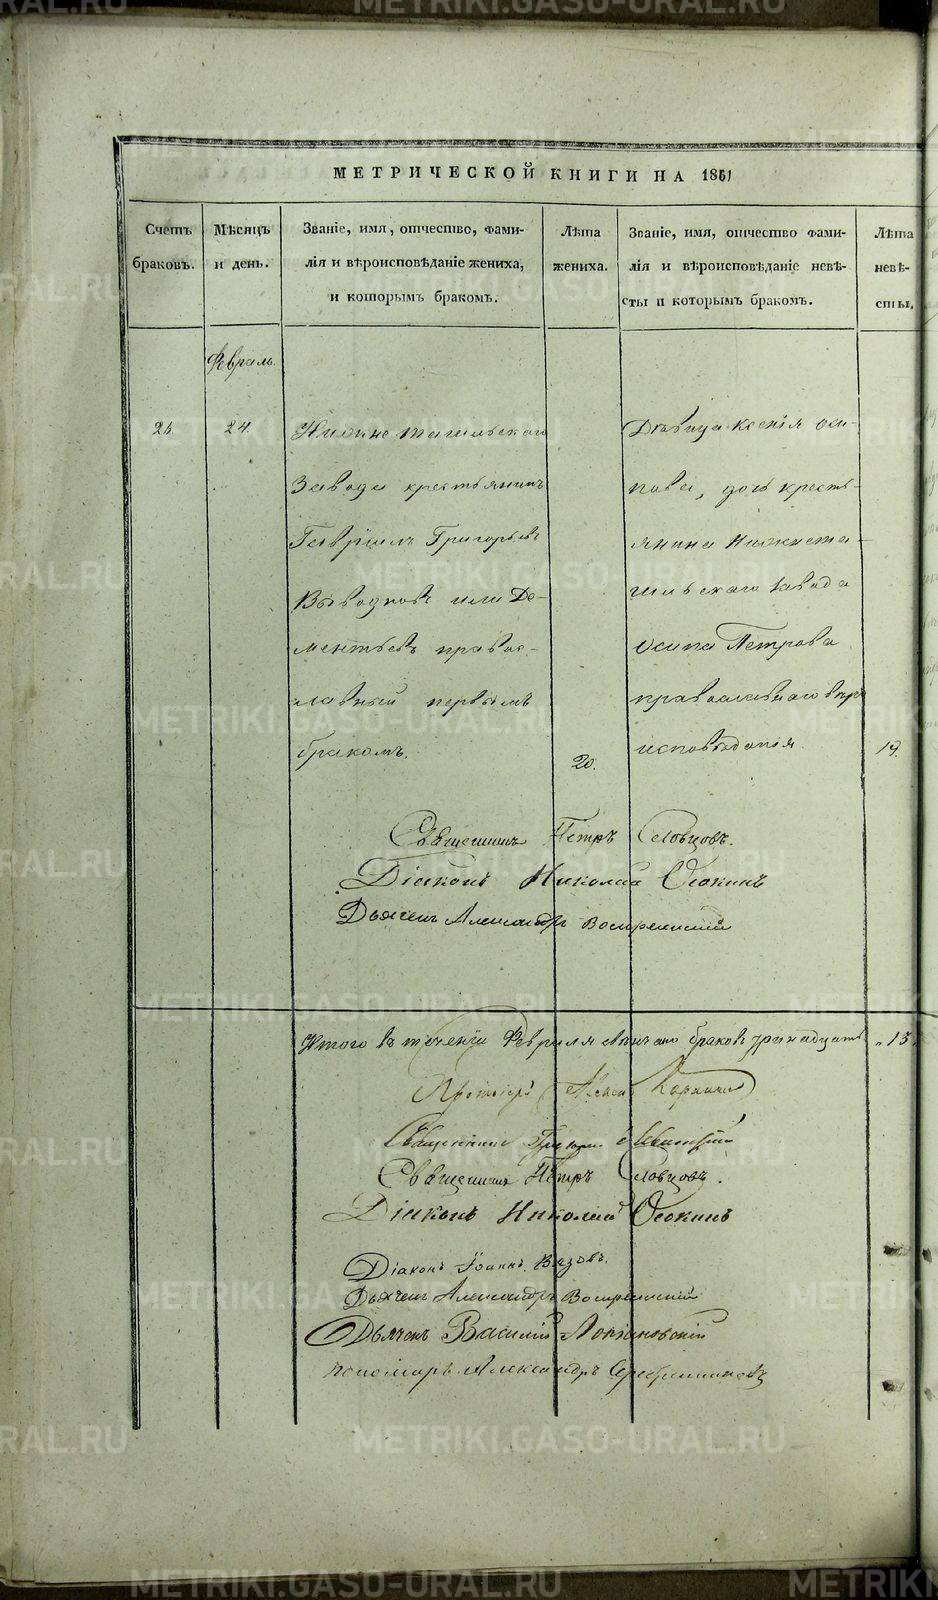 МЕТРИЧЕСКОЙ КНИГИ НА 1861
Счетъ браковъ.
Мѣсяцъ и день.
Званіе, имя, отчество, фами-
лія и вѣроисповѣданіе жениха,
и которымъ бракомъ.
Лѣта жениха.
Званіе, имя, отчество фами-
лія и вѣроисповѣданіе невѣ-
сты и которымъ бракомъ.
Лѣта невѣ-
сты.
Февраль.
25. 24.
Нижне тагильскаго
Завода крестьянинъ
Гавріилъ Григорьевъ
Выводновъ или Де-
ментьевъ правос-
лавный первымъ
бракомъ.
20.
Дѣвица Ксенія Оси-
пова, дочь кресть-
янина Нижнета-
гильскаго завода
Осипа Петрова
православнаго вѣро
исповѣданія.
19.
Священникъ Петръ Словцовъ.
Діаконъ Николай Осокинъ
Дьячекъ Александръ Воскресенскій
Итого въ теченіи Февраля вѣнчано браковъ тринадцать „13.
Протоіерей
Священникъ
Священникъ Петръ Словцовъ.
Діаконъ Николай Осокинъ
Діаконъ Іоаннъ Вязовъ.
Дьячекъ Александръ Воскресенскій
Дьячекъ Василій
пономарь Александръ Серебренниковъ
METRIKI.GASO-URAL.RU